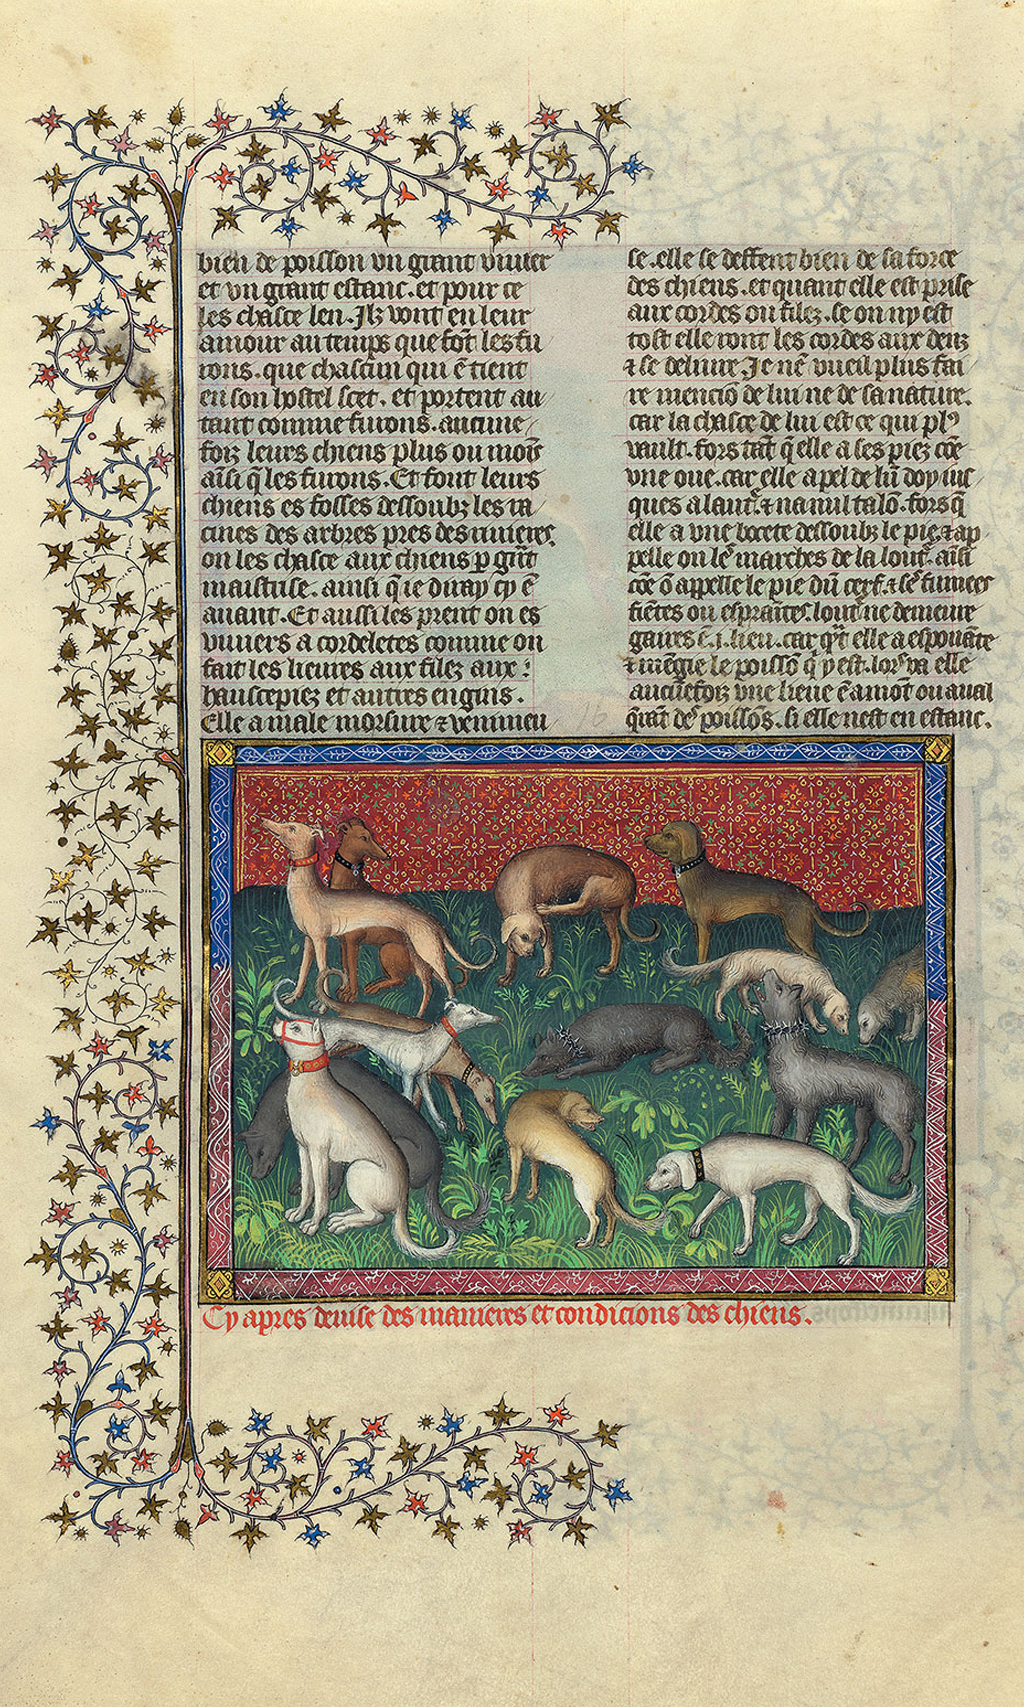 bien de poisson un grant vivier
et un grant estanc. et pour ce
les chasce len. Ilz vont en leur
amour au temps que fōt les fu
rons. que chascun qui ē tient
en son hostel scet. et portent au
tant comme furons. aucune
foiz leurs chiens plus ou mois
aīsi q̄ les furons. Et font leurs
chiens es fosses dessoubz les ra
cines des arbres pres des rivieres.
on les chasce aux chiens p grāt
maistrise. ainsi q̄ ie diray cy ē
avant. Et aussi les prent on es
viviers a cordeletes comme on
fait les lievres aux filez aux
haucepiez et autres engins.
Elle a male morsure & venimeu
se. elle se deffent bien de sa force
des chiens. et quant elle est prise
aux cordes ou filez. se on ny est
tost elle ront les cordes aux denz
& se delivre. Je nē vueil plus fai
re menciō de lui ne de sa nature.
car la chasce de lui est ce qui plꝰ
vault. fors tāt q̄ elle a ses piez cōe
une oue. car elle a pel de lū doy jus
ques a lautͤ. & na nul talō. fors q̄
elle a une bocete dessoubz le pie. & ap
pelle on les marches de la loutͤ. aīsi
cōe ō appelle le pie dū cerf. & ses fumees
fiētes ou espraītes. loutͤ ne demeure
gaires ē .i. lieu. car qāt elle a espouāte
& mēgie le poissō q̄ y est. lors va elle
aucūefoiz une lieue ē amōt ou aval
querāt des poissōs. si elle nest en estanc.
Cy apres devise des manieres et condicions des chiens.